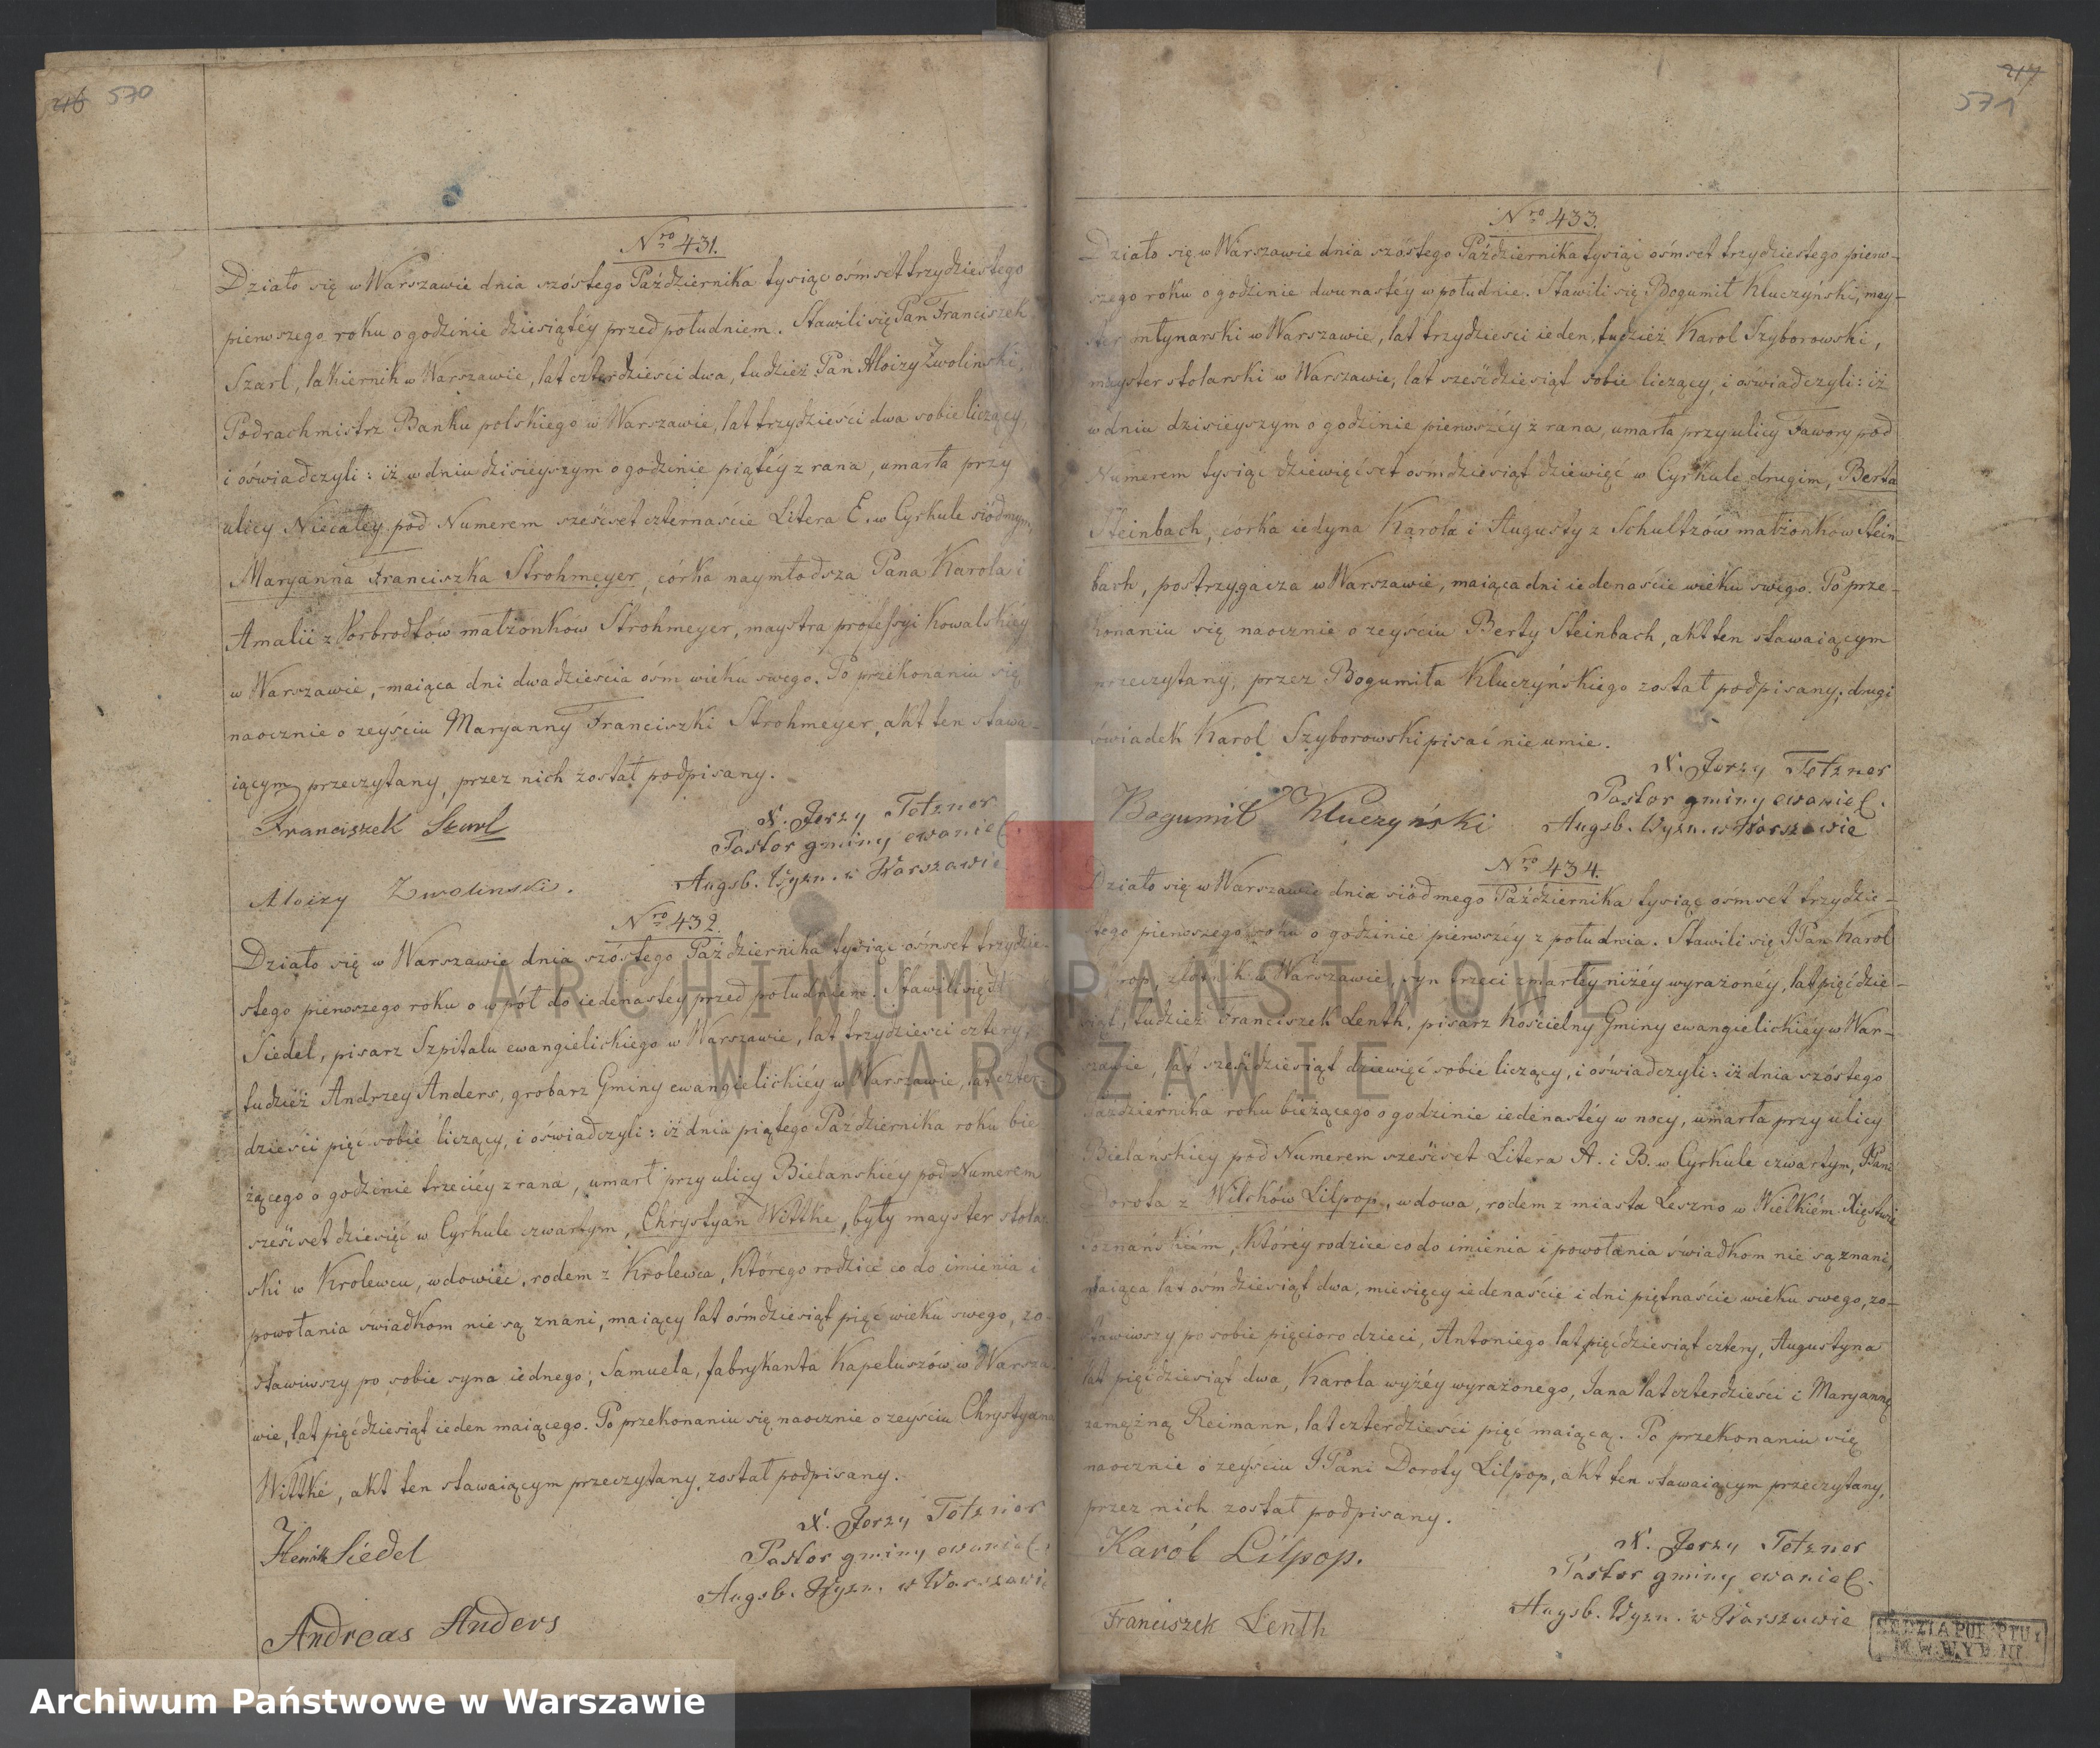 216 570
Nro 431.
Działo się w Warszawie dnia szóstego Października tysiąc ośmset trzydziestego
pierwszego roku o godzinie dziesiątéy przed południem. Stawili się Pan Franciszek
Szarl, lakiernik w Warszawie, lat czterdzieści dwa, tudzież Pan Aloizy Zwolinski,
Podrachmistrz Banku polskiego w Warszawie, lat trzydzieści dwa sobie liczący,
i oświadczyli: iż w dniu dzisieyszym o godzinie piątéy z rana, umarła przy
ulicy Niecałéy pod Numerem sześćset czternaście Litera E. w Cyrkule siódmym,
Maryanna Franciszka Strohmeyer, córka naymłodsza Pana Karola i
Amalii z Vorbrodtów małżonków Strohmeyer, maystra professyi Kowalskiéy
w Warszawie, maiąca dni dwadzieścia ośm wieku swego. Po przekonaniu się
naocznie o zeyściu Maryanny Franciszki Strohmeyer, akt ten stawa-
iącym przeczytany, przez nich został podpisany.
Franciszek Szarl
X. Jerzy Tetzner
Pastor gminy ewaniel.
Augsb. Wyzn. w Warszawie
Aloizy Zwolinski.
Nro 432.
Działo się w Warszawie dnia szóstego Października tysiąc ośmset trzydzie-
stego pierwszego roku o wpół do iedenastéy przed południem. Stawili się
Siedel, pisarz Szpitalu ewangielickiego w Warszawie, lat trzydzieści cztery,
tudzież Andrzey Anders, grobarz Gminy ewangielickiéy w Warszawie, lat czter-
dzieści pięć sobie liczący, i oświadczyli: iż dnia piątego Października roku bie-
żącego o godzinie trzeciéy z rana, umarł przy ulicy Bielanskiéy pod Numerem
sześćset dziesięć w Cyrkule czwartym, Chrystyan Wittke, były mayster stolar-
ski w Krolewcu, wdowiec, rodem z Krolewca, którego rodzice co do imienia i
powołania świadkom nie są znani, maiący lat ośmdziesiąt pięć wieku swego, zo-
stawiwszy po sobie syna iednego; Samuela, fabrykanta Kapeluszów w Warsza-
wie, lat pięćdziesiąt ieden maiącego. Po przekonaniu się naocznie o zeyściu Chrystyana
Wittke, akt ten stawaiącym przeczytany, został podpisany.
Henrik Siedel
X. Jerzy Tetzner
Pastor gminy ewaniel.
Augsb. Wyzn. w Warszawie
Andreas Anders
217
571
Nro 433.
Działo się w Warszawie dnia szóstego Października tysiąc ośmset trzydziestego pierw-
szego roku o godzinie dwunastéy w południe. Stawili się Bogumił Kluczyński, may-
ster młynarski w Warszawie, lat trzydzieści ieden, tudzież Karol Szyborowski,
mayster stolarski w Warszawie, lat sześćdziesiąt sobie liczący, i oświadczyli: iż
w dniu dzisieyszym o godzinie pierwszéy z rana, umarła przy ulicy Fawory pod
Numerem tysiąc dziewięćset ośmdziesiąt dziewięć w Cyrkule drugim, Berta
Steinbach, corka iedyna Karola i Augusty z Schultzów małżonków Stein-
bach, postrzygacza w Warszawie, maiąca dni iedenaście wieku swego. Po prze-
konaniu się naocznie o zeyściu Berty Steinbach, akt ten stawaiącym
przeczytany, przez Bogumiła Kluczyńskiego został podpisany; drugi
świadek Karol Szyborowski pisać nie umie.
X. Jerzy Tetzner
Pastor gminy ewaniel.
Augsb. Wyzn. w Warszawie
Bogumił Kluczyński
Nro 434.
Działo się w Warszawie dnia siódmego Października tysiąc ośmset trzydzie-
stego pierwszego roku o godzinie pierwszéy z południa. Stawili się JPan Karol
rop, złotnik w Warszawie, syn trzeci zmarłéy niżéy wyrażonéy, lat pięćdzie-
siąt, tudzież Franciszek Lenth, pisarz kościelny Gminy ewangielickiéy w War-
szawie, lat sześćdziesiąt dziewięć sobie liczący, i oświadczyli: iż dnia szóstego
Października roku bieżącego o godzinie iedenastéy w nocy, umarła przy ulicy
Bielańskiéy pod Numerem sześćset Litera A. i B. w Cyrkule czwartym, JPani
Dorota z Wilcków Lilpop, wdowa, rodem z miasta Leszno w Wielkiém Xięstwie
Poznańskiém, któréy rodzice co do imienia i powołania świadkom nie są znani,
maiąca lat ośmdziesiąt dwa, miesięcy iedenaście i dni piętnaście wieku swego, zo-
stawiwszy po sobie pięcioro dzieci, Antoniego lat pięćdziesiąt cztery, Augustyna
lat pięćdziesiąt dwa, Karola wyżéy wyrażonego, Jana lat czterdzieści i Maryannę
zamężną Reimann, lat czterdzieści pięć maiącą. Po przekonaniu się
naocznie o zeyściu JPani Doroty Lilpop, akt ten stawaiącym przeczytany,
przez nich został podpisany.
Karól Lilpop.
X. Jerzy Tetzner
Pastor gminy ewaniel.
Augsb. Wyzn. w Warszawie
Franciszek Lenth
ARCHIWUM PAŃSTWOWE
W WARSZAWIE
Archiwum Państwowe w Warszawie